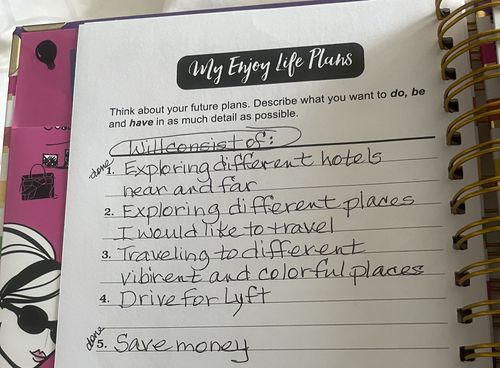 My Enjoy Life Plans
Think about your future plans. Describe what you want to do, be
and have in as much detail as possible.
Will consist of:
done
1. Exploring different hotels
near and far
2. Exploring different places
I would like to travel
3. Traveling to different
vibirent and colorful places
4. Drive for Lyft
done
5. Save money